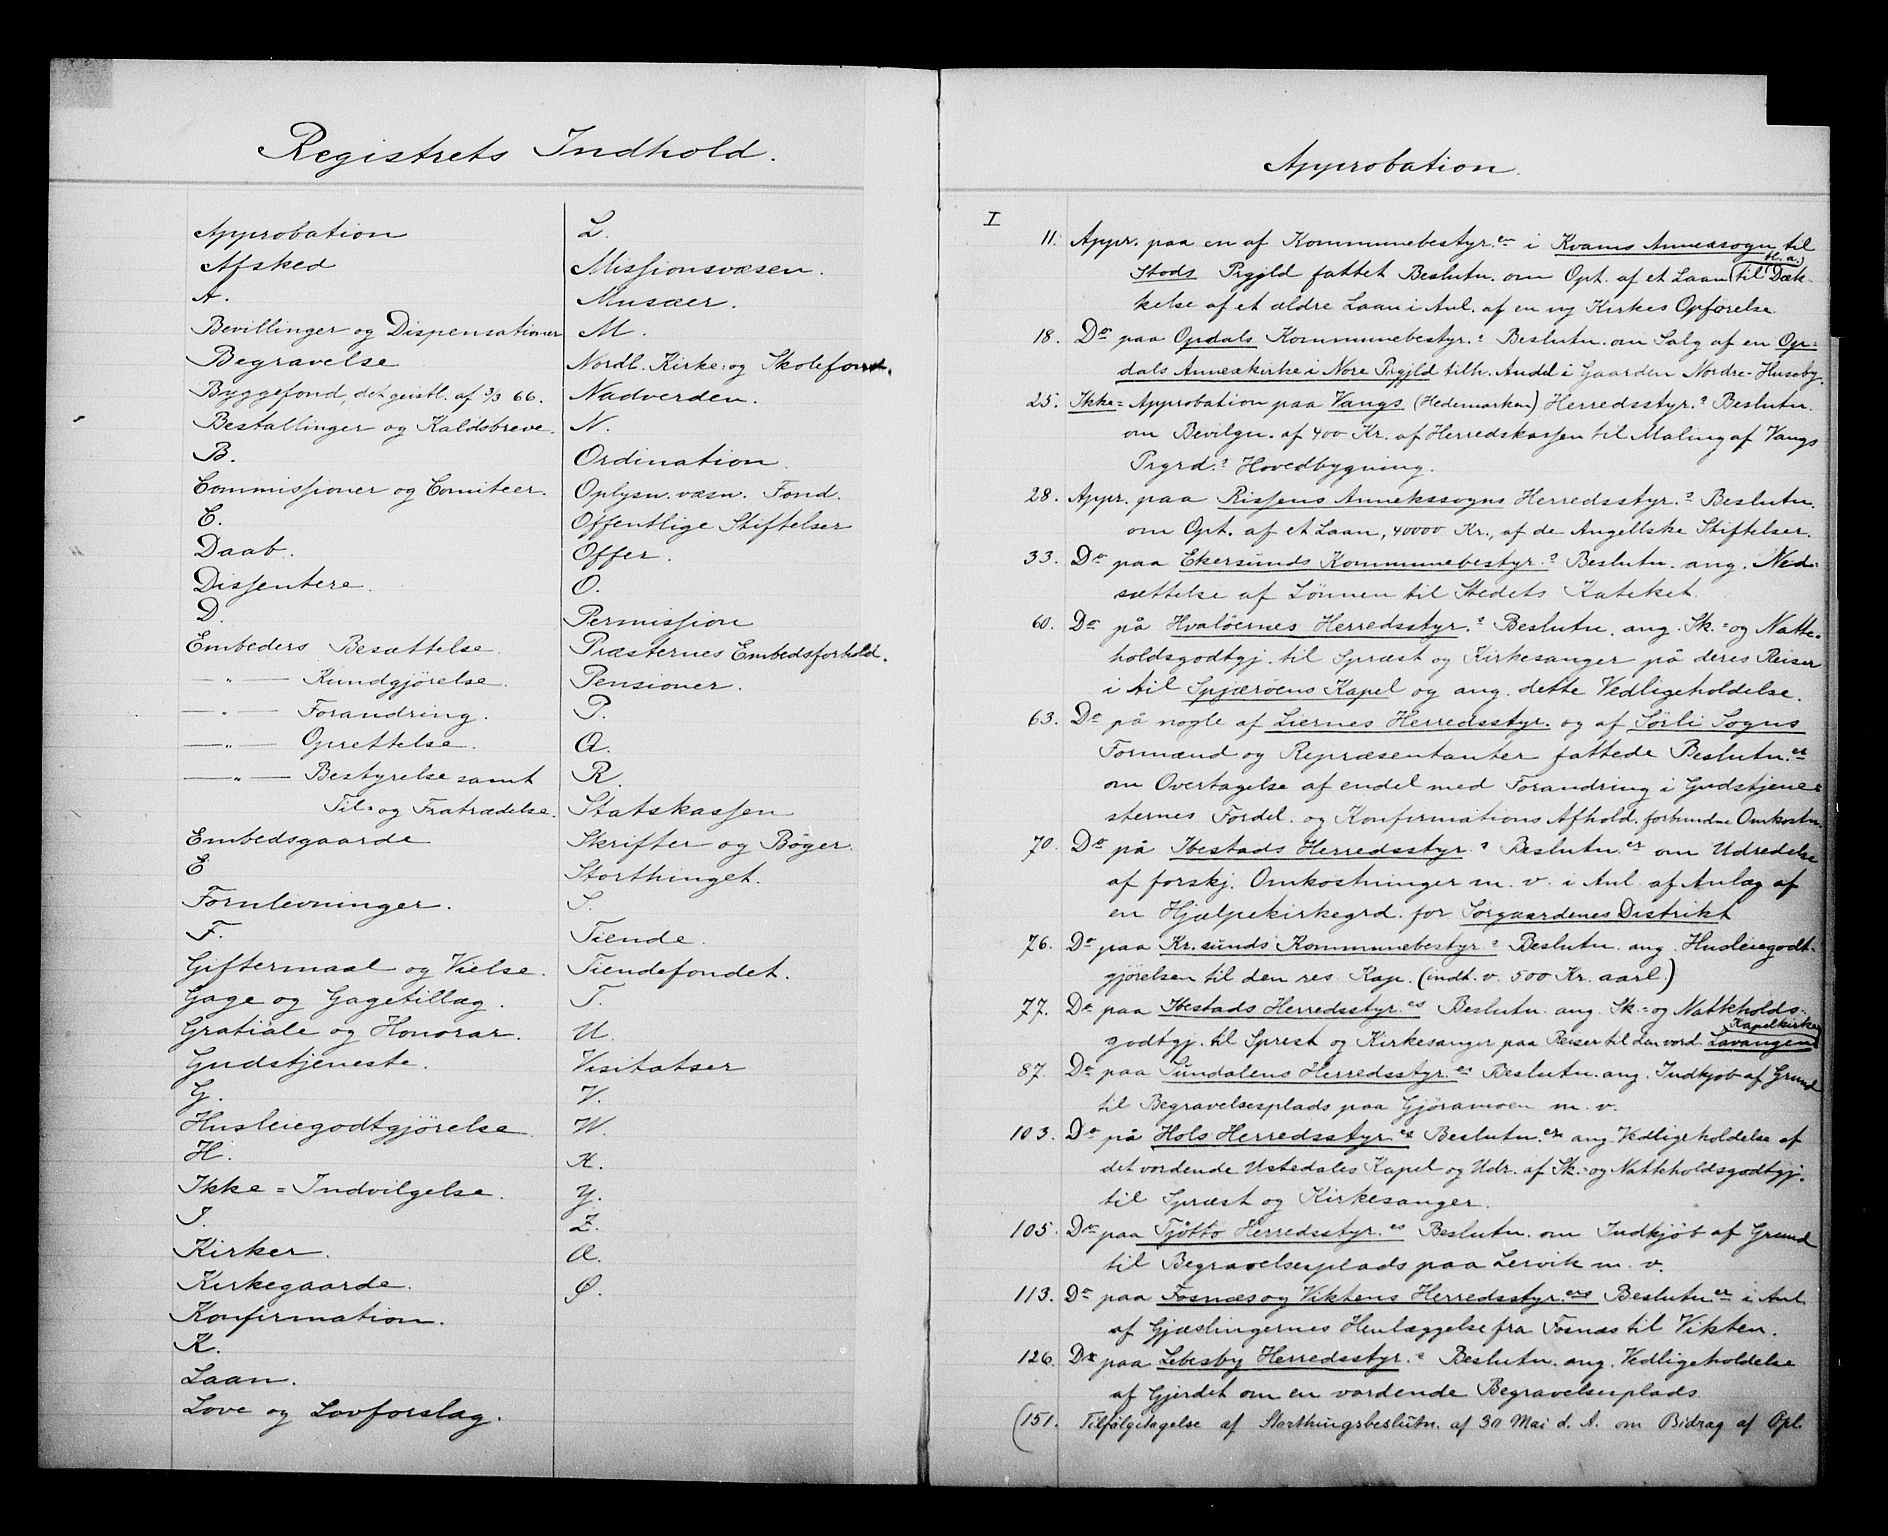 Registrets Indhold.
Approbation
Afsked
A.
Bevillinger og Dispensationer
Begravelse
Byggefond, det geistl. af 3/3 66.
Bestallinger og Kaldsbreve.
B.
Commissioner og Comiteer.
C.
Daab.
Dissentere.
D.
Embeders Besættelse.
—„— Kundgjørelse.
—„— Forandring.
—„— Oprettelse.
—„— Bestyrelse samt
Til- og Fratrædelse.
Embedsgaarde
E
Fornlevninger.
F.
Giftermaal og Vielse.
Gage og Gagetillæg.
Gratiale og Honorar.
Gudstjeneste.
G.
Husleiegodtgjörelse.
H.
Ikke=Indvilgelse.
I.
Kirker.
Kirkegaarde.
Konfirmation.
K.
Laan.
Love og Lovforslag.
L.
Missionsvæsen.
Musæer.
M.
Nordl. Kirke- og Skolefond.
Nadverden.
N.
Ordination.
Oplysn. væsn. Fond.
Offentlige Stiftelser
Offer.
O.
Permission
Præsternes Embedsforhold.
Pensioner.
P.
Q.
R.
Statskassen
Skrifter og Bøger.
Storthinget.
S.
Tiende.
Tiendefondet.
T.
U.
Visitatser
V.
W.
X.
Y.
Z.
Æ.
Ø.
Approbation.
I
11. Appr. paa en af Kommunebestyr.en i Kvams Annexsogn til
Stods Prgjld fattet Beslutn. om Opt. af et Laan (bl. a.) til Dæk-
kelse af et ældre Laan i Anl. af en ny Kirkes Opförelse.
18. Do paa Opdals Kommunebestyr.s Beslutn. om Salg af en Op-
dals Annexkirke i Nore Prgjld tilh. Andel i Gaarden Nordre-Huseby.
25. Ikke=Approbation paa Vangs (Hedemarken) Herredsstyr.s Beslutn.
om Bevilgn. af 400 Kr. af Herredskassen til Maling af Vangs
Prgrd.s Hovedbygning.
28. Appr. paa Rissens Annekssogns Herredsstyr.s Beslutn.
om Opt. af et Laan, 40000 Kr., af de Angellske Stiftelser.
33. Do paa Ekersunds Kommunebestyr.s Beslutn. ang. Ned-
sættelse af Lönnen til Stedets Kateket.
60. Do på Hvalöernes Herredsstyr.s Beslutn. ang. Sk.- og Natte-
holdsgodtgj. til Spræst og Kirkesanger på deres Reiser
i til Spjæröens Kapel og ang. dette Vedligeholdelse.
63. Do på nogle af Liernes Herredsstyr. og af Sörli Sogns
Formænd og Repræsentanter fattede Beslutn.er
om Overtagelse af endel med Forandring i Gudstjene-
sternes Fordel. og Konfirmations Afhold. forbundne Omkostn.
70. Do på Ibestads Herredsstyr.s Beslutn.er om Udredelse
af forskj. Omkostninger m. v. i Anl. af Anlæg af
en Hjælpekirkegrd. for Sörgaardenes Distrikt
76. Do paa Kr.sunds Kommunebestyr.s Beslutn. ang. Husleiegodt-
gjörelsen til den res. Kap. (indt. v. 500 Kr. aarl.)
77. Do paa Ibestads Herredsstyr.es Beslutn. ang. Sk.- og Nattholds-
godtgj. til Sprest og Kirkesanger paa Reiser til den vord. Lavangens Kapelkirke
87. Do paa Sundalens Herredsstyr.es Beslutn. ang. Indkjöb af Grund
til Begravelsesplads paa Gjöramoen m. v.
103. Do på Hols Herredsstyr.es Beslutn.er ang. Vedligeholdelse af
det vordende Ustedales Kapel og Udr. af Sk.- og Nattholdsgodtgj.
til Spræst og Kirkesanger.
105. Do paa Tjöttö Herredsstyr.es Beslutn. om Indkjöb af Grund
til Begravelsesplads paa Lervik m. v.
113. Do paa Fosnæs og Viktens Herredsstyr.ers Beslutn.er i Anl.
af Gjæslingernes Henlæggelse fra Fosnæs til Vikten.
126. Do paa Lebesby Herredsstyr.s Beslutn. ang. Vedligeholdelse
af Gjerdet om en vordende Begravelsesplads.
(151. Tilfölgetagelse af Storthingsbeslutn. af 30 Mai d. A. om Bidrag af Opl.